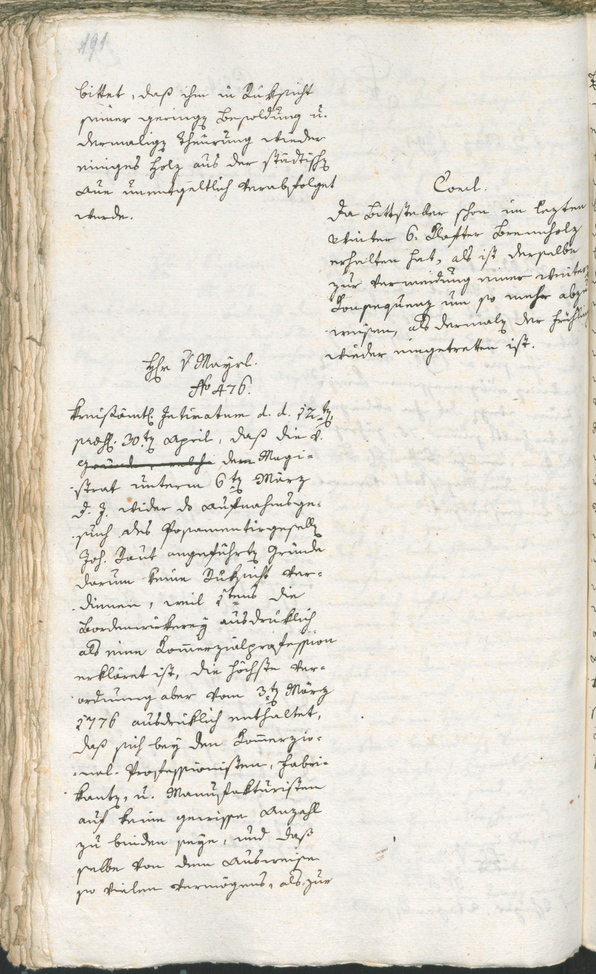 191
bittet, daß ihm in Ruksicht
seiner geringen Besoldung u.
dermaligen Theurung wieder
einiges Holz aus der städtischen
Aue unentgeltlich verabfolget
werde.
Concl.
Da Bittsteller schon im lezten
Winter 6. Klafter Brennholz
erhalten hat, als ist derselbe
zur Vermeidung einer weitern
Konsequenz um so mehr abzu
weisen, als dermalen der Frühling
wieder eingetretten ist.
Hr. v Mayrl.
No 476.
Kreisämtl. Intimatum d. d. 12ten
praes. 30ten April, daß die v.
dem Magi-
strat unterm 6ten März
d. J. wider das Aufnahmsge-
such des Posamentirgesellen
Joh. Raut angeführten Gründe
darum keine Ruksicht ver-
dienen, weil 1tens die
Bordenwirkerey ausdruklich
als eine Kommerzialprofession
erkläret ist, die höchste Ver-
ordnung aber vom 3ten März
1776 ausdruklich enthaltet,
daß sich bey den Kommerzio-
nal-Professionisten, Fabri-
kanten, u. Manufakturisten
auf keine gewisse Anzahl
zu binden seye, und daß
selbe von dem Ausweise
so vielen Vermögens, als zur